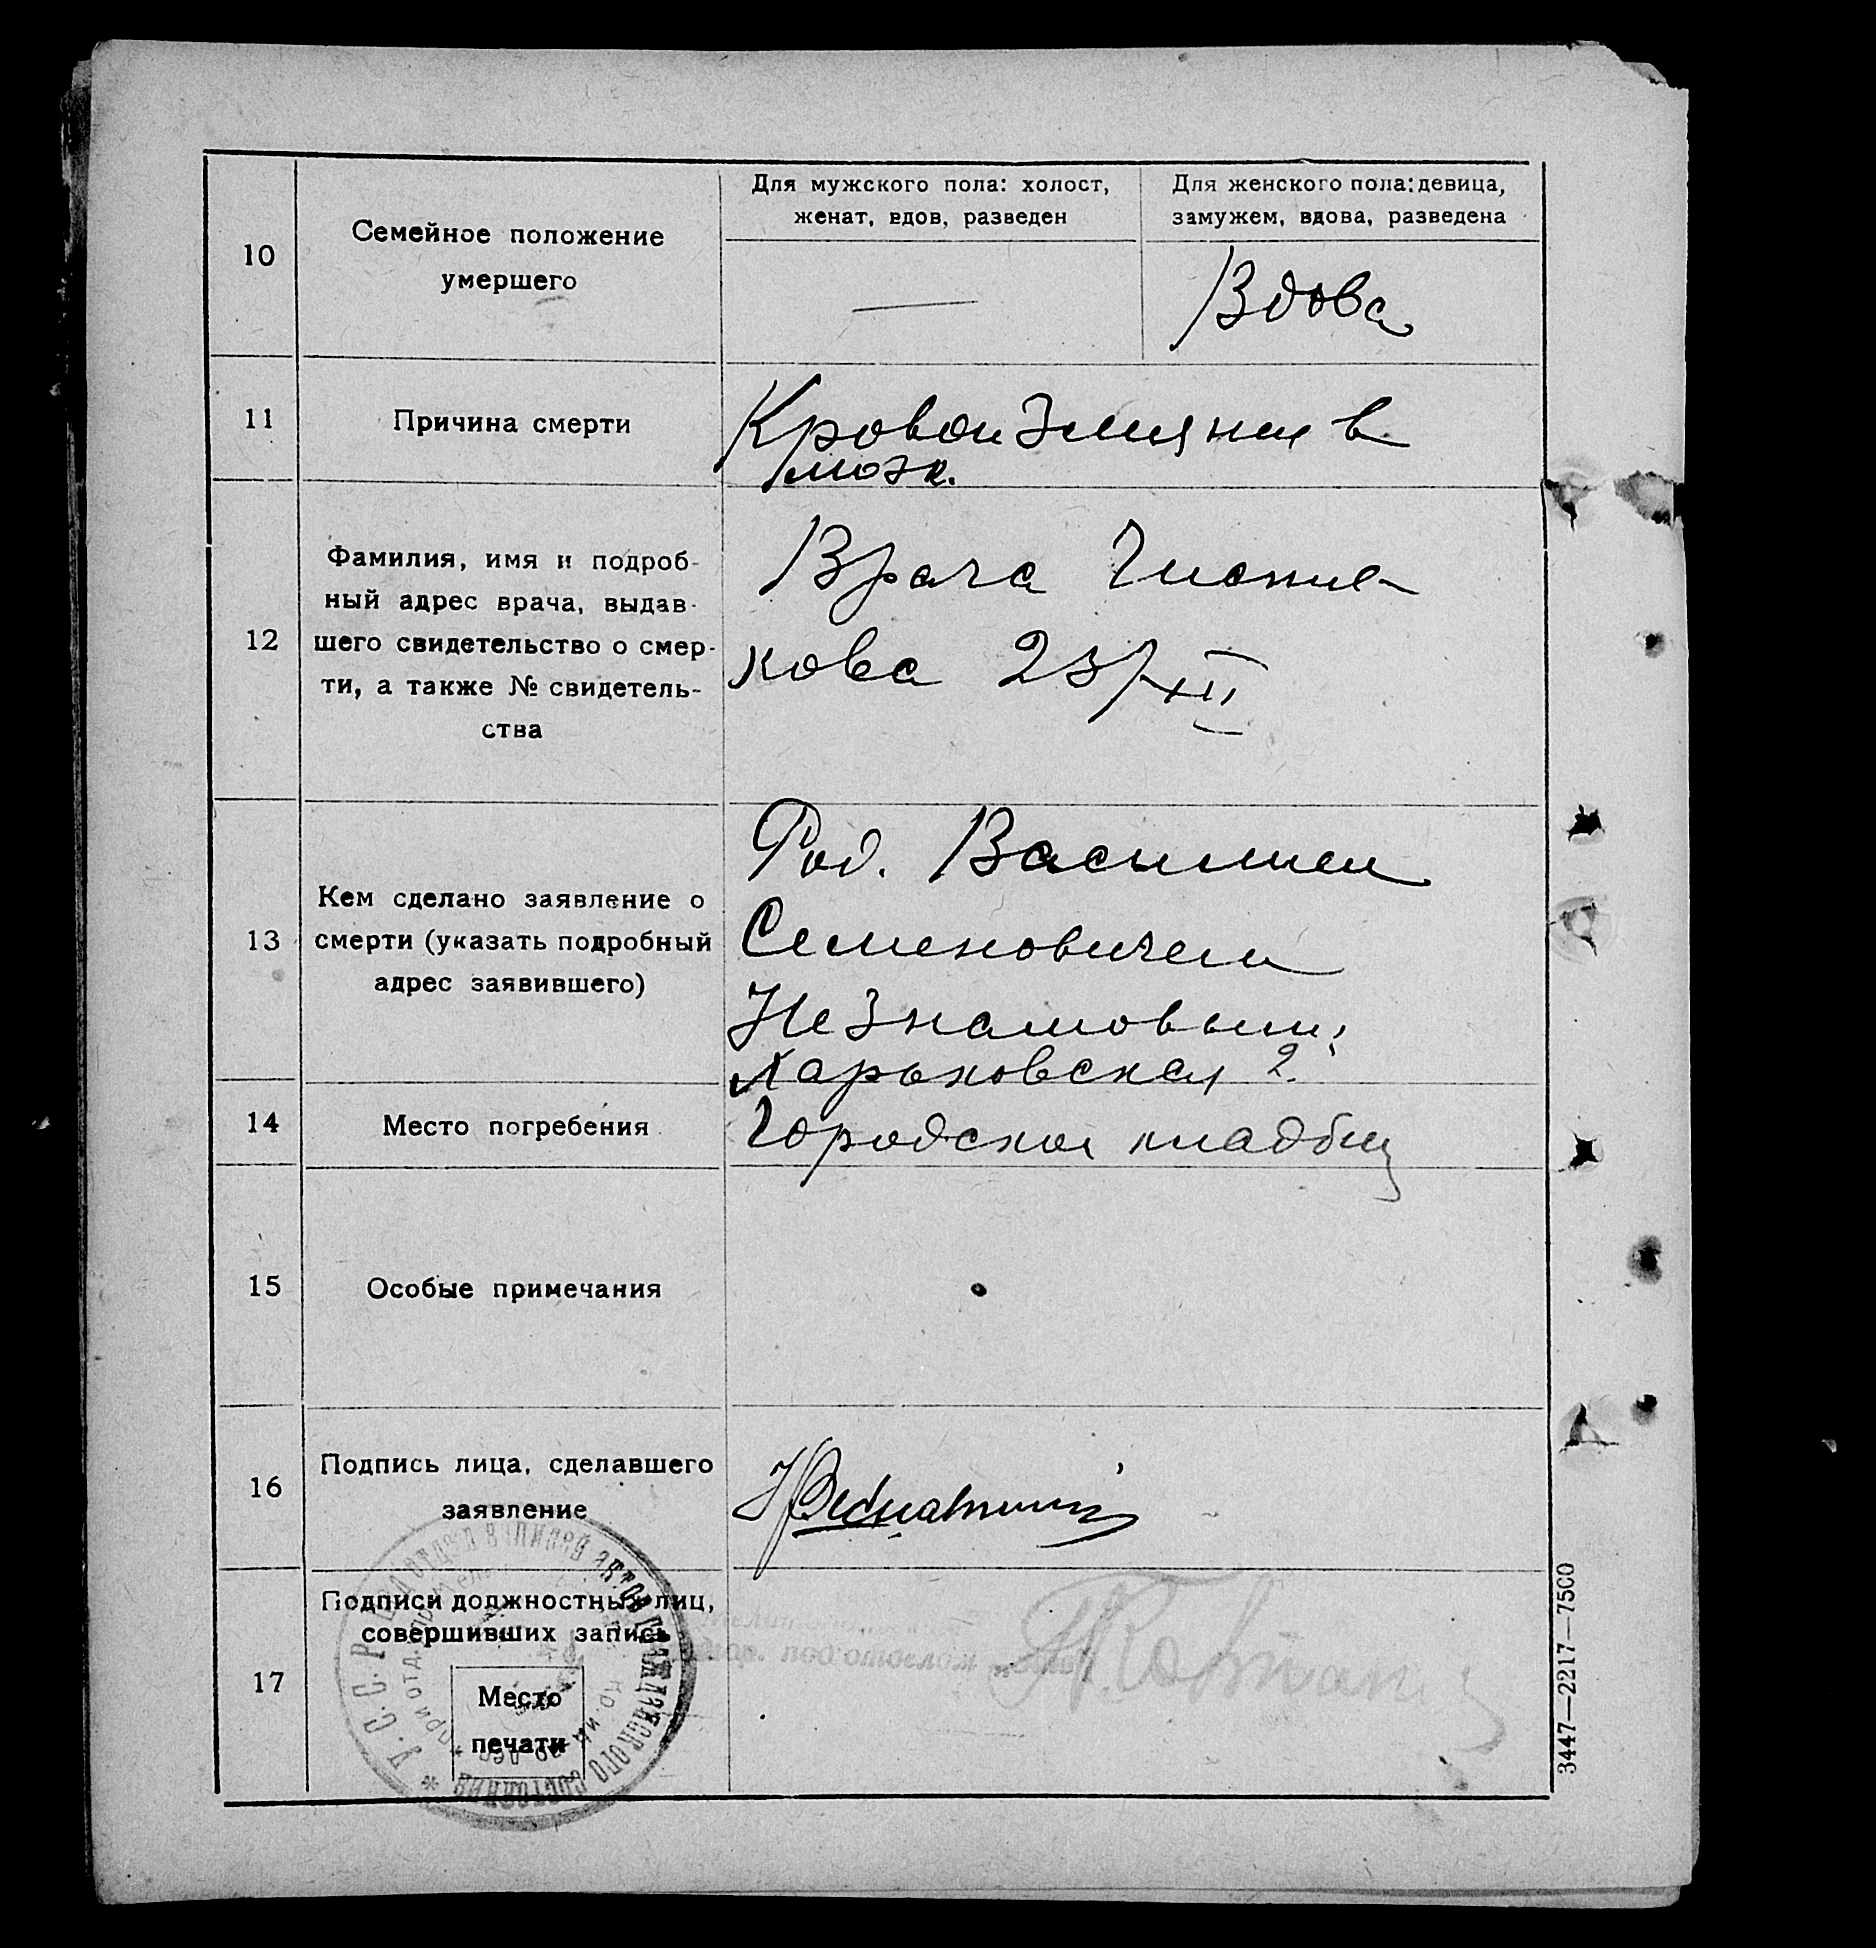 Для мужского пола: холост,
женат, вдов, разведен
Для женского пола: девица,
замужем, вдова, разведена
10
Семейное положение
умершего
—
Вдова
11
Причина смерти
Кровоизлияние в
мозк.
12
Фамилия, имя и подроб-
ный адрес врача, выдав-
шего свидетельство о смер-
ти, а также № свидетель-
ства
Врача
кова 23/XII
13
Кем сделано заявление о
смерти (указать подробный
адрес заявившего)
Род. Василием
Семеновичем
Незнамовым
Харьковская 2.
14
Место погребения
Городское кладбищ
15
Особые примечания
16
Подпись лица, сделавшего
заявление
17
Подписи должностных лиц,
совершивших запись
Место
печати
У.С.Р.
гражданского состояния
3447—2217—7500